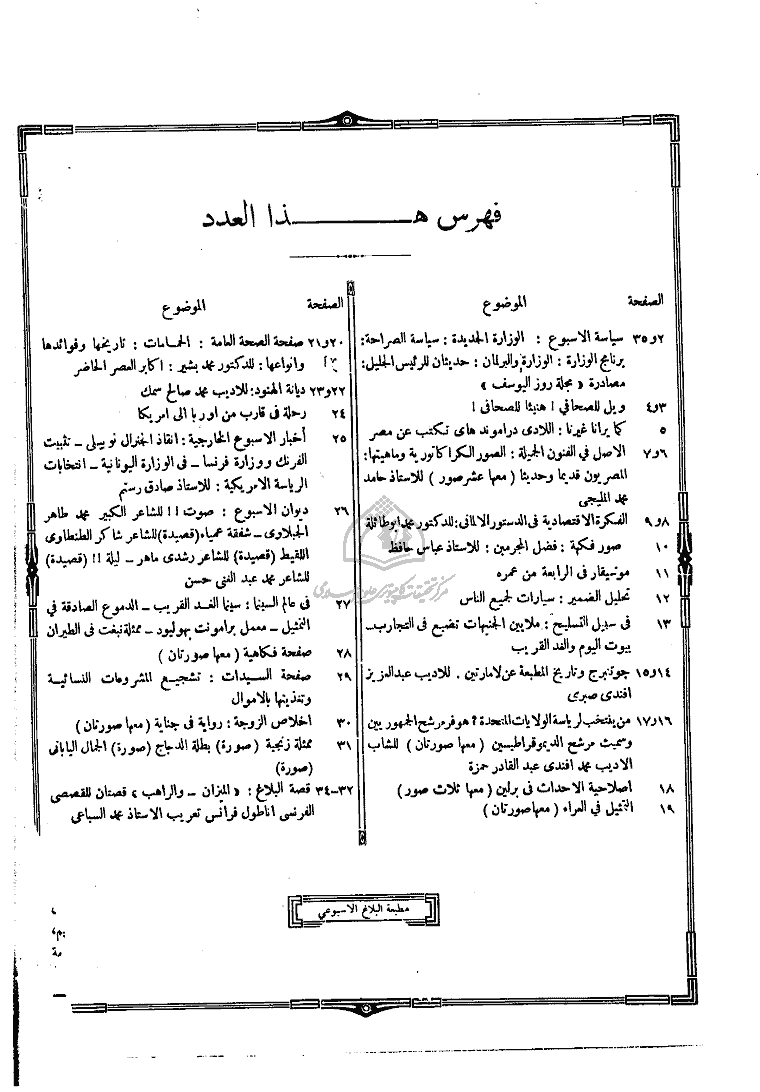 فهرس هـــذا العدد
الصفحة الموضوع
٢ و ٣٥ سياسة الاسبوع : الوزارة الجديدة : سياسة الصراحة :
برنامج الوزارة : الوزارة والبرلمان : حديثان للرئيس الجليل :
مصادرة « مجلة روز اليوسف »
٣ و ٤ ويل للصحافي ! هنيئا للصحافى !
٥ كما يرانا غيرنا : اللادى دراموند هاى تكتب عن مصر
٦ و ٧ الاصل في الفنون الجميلة : الصور الكراكاتورية وماهيتها :
المصريون قديما وحديثا ( معها عشر صور ) للاستاذ حامد
محمد المليجى
٨ و ٩ الفكرة الاقتصادية فى الدستور الالمانى : للدكتور محمد ابو طائلة
١٠ صور فكهة : فضل المجرمين : للاستاذ عباس حافظ
١١ موسيقار فى الرابعة من عمره
١٢ تحليل الضمير : سيارات لجميع الناس
١٣ فى سبيل التسليح : ملايين الجنيهات تضيع فى التجارب ــ
بيوت اليوم والغد القريب
١٤ و ١٥ جوتنبرج وتاريخ المطبعة عن لامارتين . للاديب عبد العزيز
افندى صبرى
١٦ و ١٧ من ينتخب لرياسة الولايات المتحدة ؟ هوفر مرشح الجمهوريين
وسميث مرشح الديموقراطيين ( معها صورتان ) للشاب
الاديب محمد افندى عبد القادر حمزة
١٨ اصلاحية الاحداث فى برلين ( معها ثلاث صور )
١٩ التمثيل في العراء ( معها صورتان )
الصفحة الموضوع
٢٠ و ٢١ صفحة الصحة العامة : الحمامات : تاريخها وفوائدها
وانواعها : للدكتور محمد بشير : اكابر العصر الحاضر
٢٢ و ٢٣ ديانة الهنود : للاديب محمد صالح سمك
٢٤ رحلة فى قارب من اوربا الى امريكا
٢٥ أخبار الاسبوع الخارجية : انقاذ الجنرال نوبيلى ــ تثبيت
الفرنك ووزارة فرنسا ــ فى الوزارة اليونانية ــ انتخابات
الرياسة الامريكية : للاستاذ صادق رستم
٢٦ ديوان الاسبوع : صوت !! للشاعر الكبير محمد طاهر
الجبلاوى ــ شفقة عمياء ( قصيدة ) للشاعر شاكر الطنطاوى
اللقيط ( قصيدة ) للشاعر رشدى ماهر ــ ليلة !! ( قصيدة )
للشاعر محمد عبد الغنى حسن
٢٧ فى عالم السينما : سينما الغد القريب ــ الدموع الصادقة في
التمثيل ــ معمل برامونت بهوليود ــ ممثلة نبغت فى الطيران
٢٨ صفحة فكاهية ( معها صورتان )
٢٩ صفحة السيدات : تشجيع المشروعات النسائية
وتغذيتها بالاموال
٣٠ اخلاص الزوجة : رواية فى جناية ( معها صورتان )
٣١ ممثلة زنجية ( صورة ) بطلة الدجاج ( صورة ) الجمال اليابانى
( صورة )
٣٢ــ٣٤ قصة البلاغ : « الميزان ــ والراهب » قصتان للقصصى
الفرنسى اناطول فرانس تعريب الاستاذ محمد السباعى
مطبعة البلاغ الاسبوعي